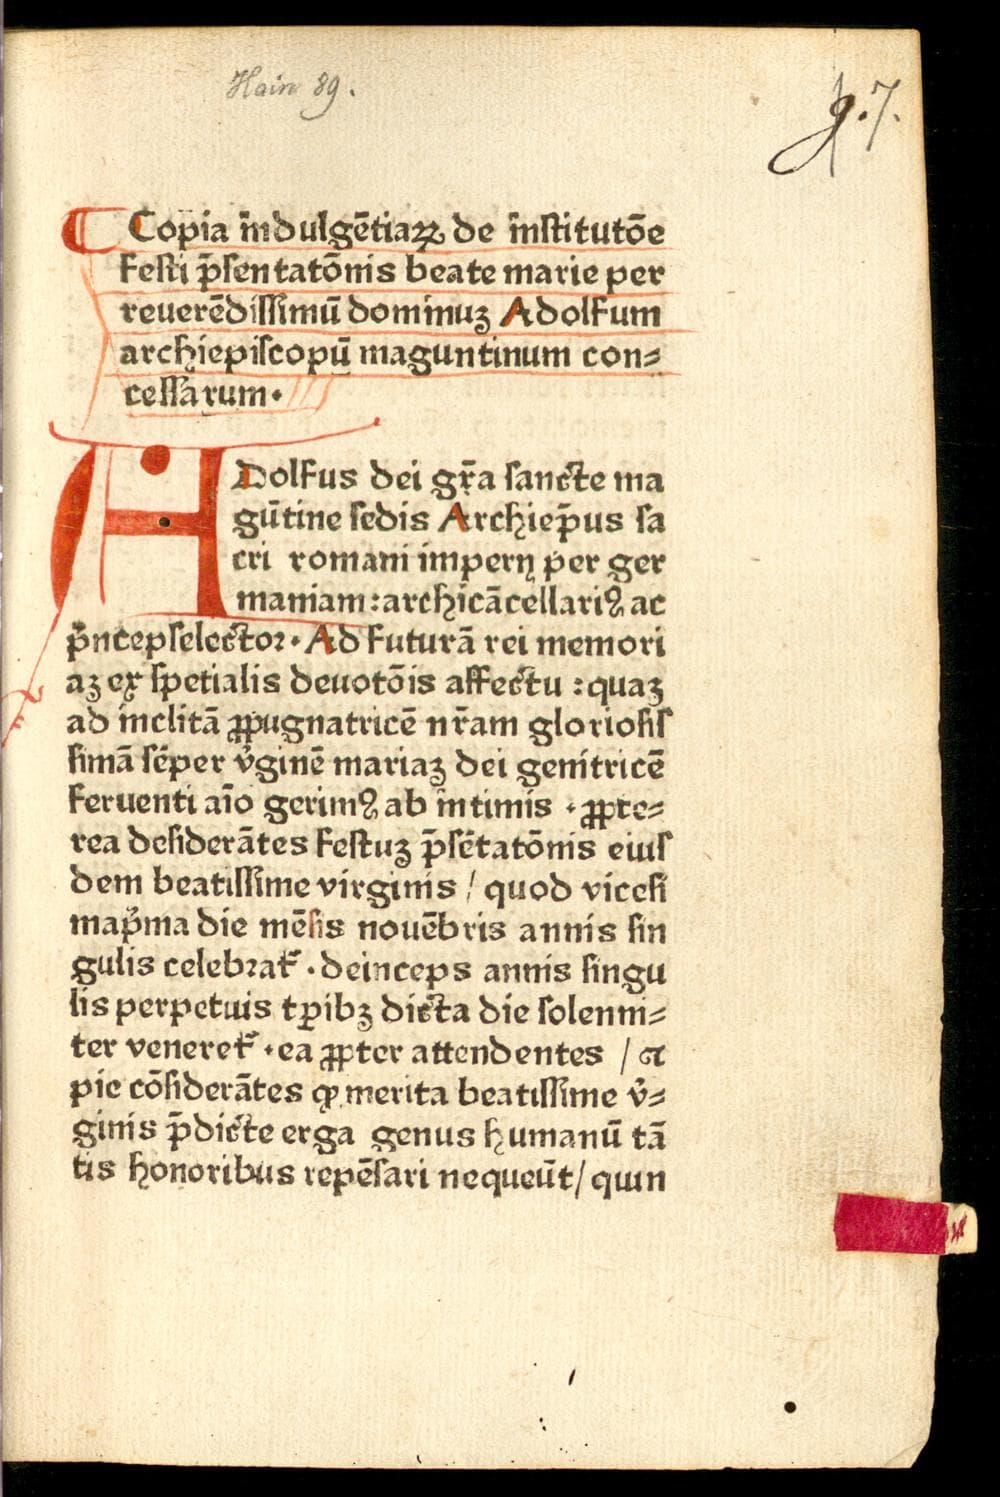 Hain 89.
g.7.
Copia indulgētiaꝝ de institutōe
festi p̄sentatōnis beate marie per
reuerēdissimū dominuꝫ Adolfum
archiepiscopū maguntinum con⸗
cessarum.
ADolfus dei gr̄a sancte ma
gūtine sedis Archiep̄us sa
cri romani imperij per ger
maniam:archicācellariꝰ ac
p̄ncepselector. Ad futurā rei memori
aꝫ ex spetialis deuotōis affectu :quaꝫ
ad inclitā ꝓpugnatricē nr̄am gloriosis
simā sēper v̓ginē mariaꝫ dei genitricē
feruenti aīo gerimꝰ ab intimis . ꝓpte⸗
rea desiderātes festuꝫ p̄sētatōnis eius
dem beatissime virginis / quod vicesi
map̓ma die mēsis nouēbris annis sin
gulis celebrat᷑ . deinceps annis singu
lis perpetuis tꝑibꝫ dicta die solenni⸗
ter veneret᷑ . ea ꝓpter attendentes / et
pie cōsiderātes ꝙ merita beatissime v̓⸗
ginis p̄dicte erga genus humanū tā
tis honoribus repēsari nequeūt/ quin